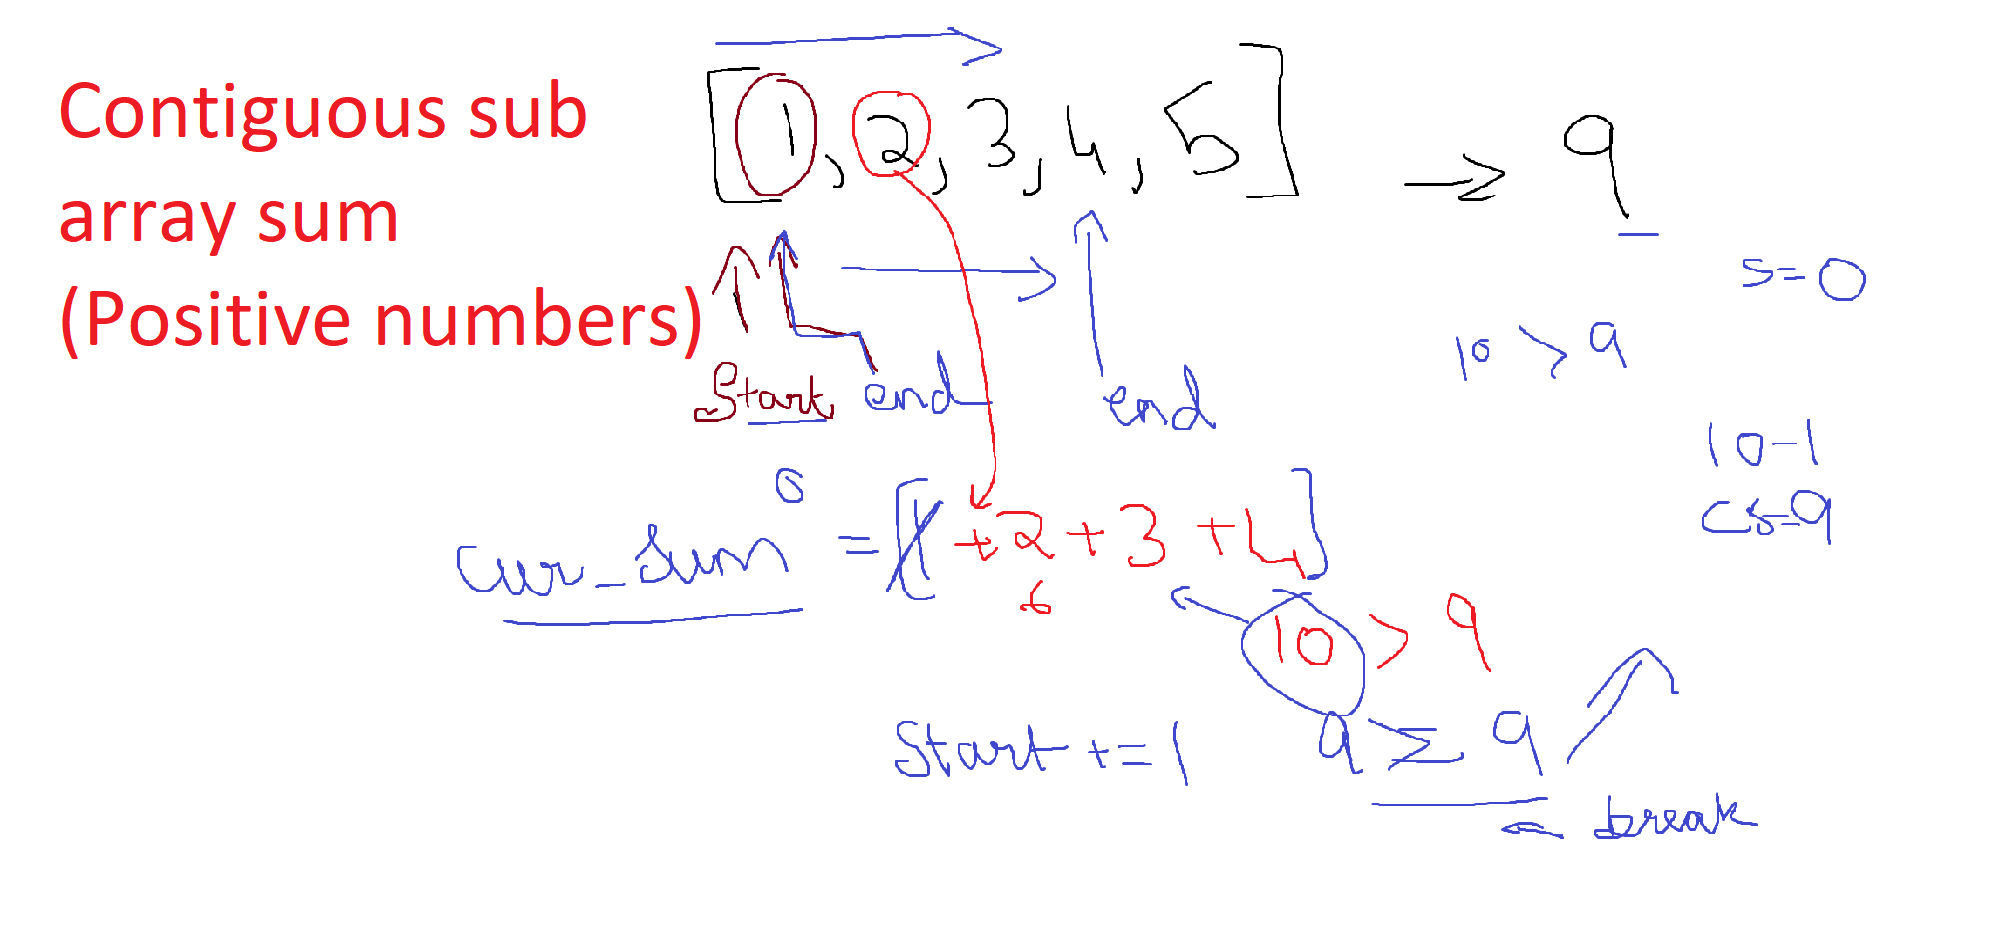 Contiguous sub
array sum
(Positive numbers)
[1, 2, 3, 4, 5] → 9
s=0
Start end end
10 > 9
10-1
cs=9
0
cur_sum = [1 +2 +3 +4]
6
10 > 9
Start += 1
9 9
break